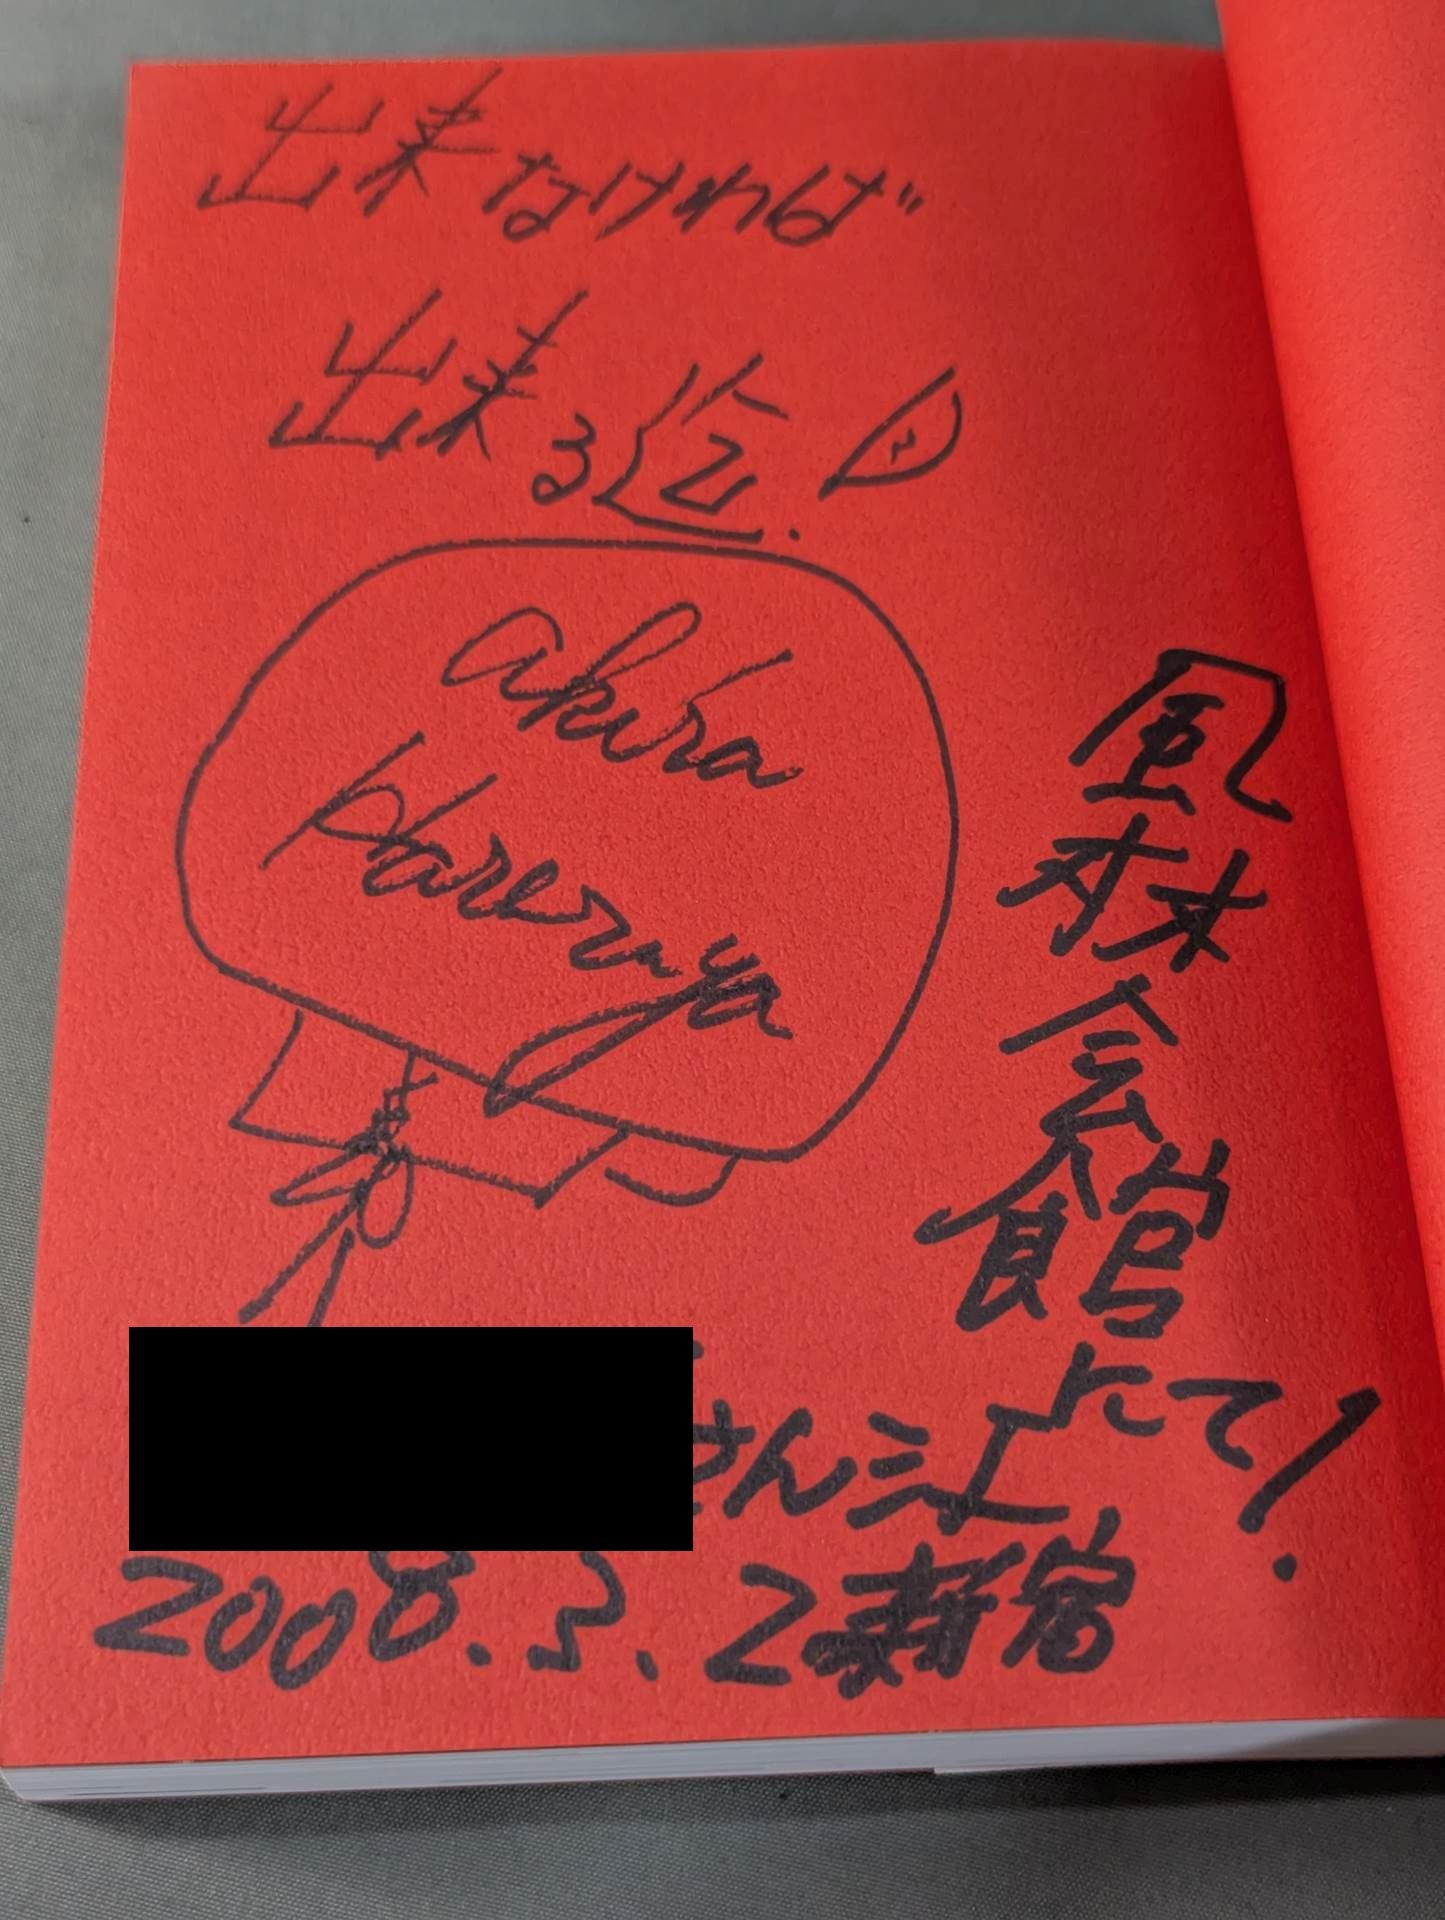 出来なければ
出来る迄.
akira
Hareruya
風林会館にて!
さん江
2008.3.2 新宿